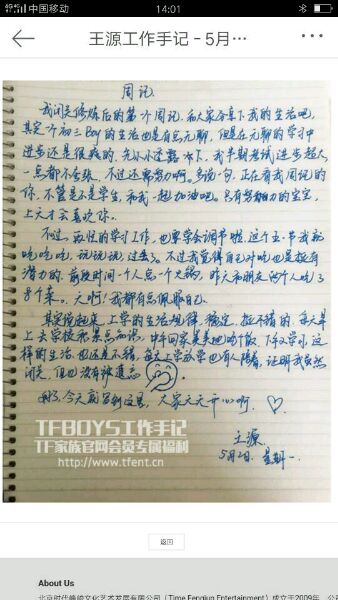 中国移动 14:01
王源工作手记 - 5月…
周记
我闭关修炼后的第一个周记，和大家分享下我的生活吧，
其实一个初三Boy的生活也是有点无聊，但是在无聊的学习中
进步还是很快的，先小小透露一下，我半期考试进步超大
一点都不夸张，不过还需努力啊。多说一句，正在看我周记的
你，不管是不是学生，和我一起加油吧。只有努力的宝宝，
上天才会喜欢你。
不过，疯狂的学习工作，也要学会调节啦，这个五一节我就
吃吃吃吃，玩玩玩，过去了。不过我觉得自己对吃也是挺有
潜力的，前段时间一个人点一个火锅，昨天和朋友两个人吃了
8个菜。天啊！我都有点佩服自己。
其实说起来，上学的生活规律，稳定，挺不错的，每天早
上去学校
中午回家美美地吃个饭，下午又学习，这
样的生活也还是不错，每天上学放学也有人陪着，证明我虽然
闭关，但也没有被遗忘
好了，今天就写到这里，大家天天开心啊。
王源
5月2日 星期一
TFBOYS工作手记
TF家族官网会员专属福利
http://www.tfent.cn
返回
About Us
北京时代峰峻文化艺术发展有限公司（Time Fengjun Entertainment）成立于2009年，公